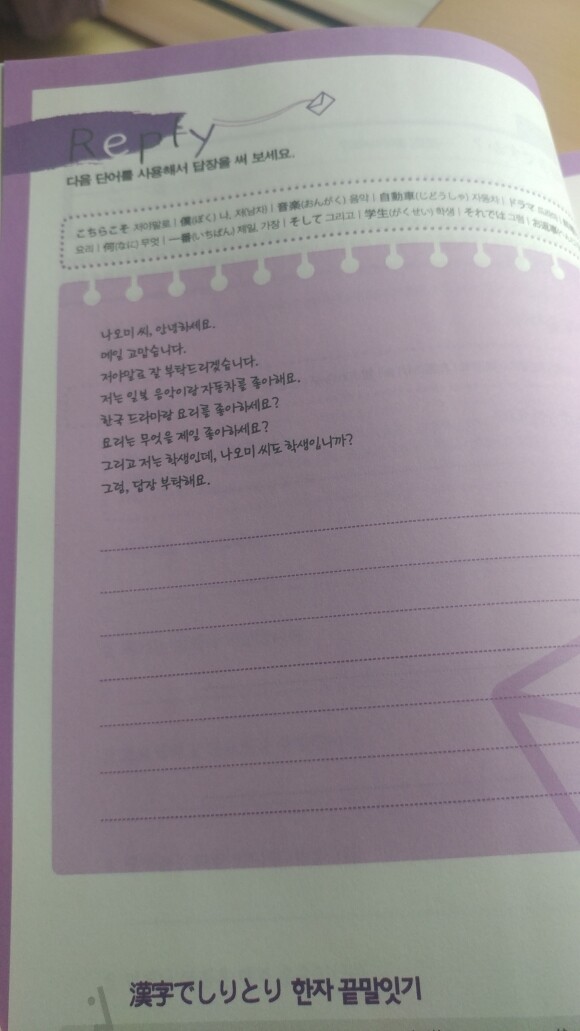 Reply
다음 단어를 사용해서 답장을 써 보세요.
こちらこそ 저야말로 | 僕(ぼく) 나, 저(남자) | 音楽(おんがく) 음악 | 自動車(じどうしゃ) 자동차 | ドラマ 드라마
요리 | 何(なに) 무엇 | 一番(いちばん) 제일, 가장 | そして 그리고 | 学生(がくせい) 학생 | それでは 그럼 |
나오미 씨, 안녕하세요.
메일 고맙습니다.
저야말로 잘 부탁드리겠습니다.
저는 일본 음악이랑 자동차를 좋아해요.
한국 드라마랑 요리를 좋아하세요?
요리는 무엇을 제일 좋아하세요?
그리고 저는 학생인데, 나오미 씨도 학생입니까?
그럼, 답장 부탁해요.
漢字でしりとり 한자 끝말잇기